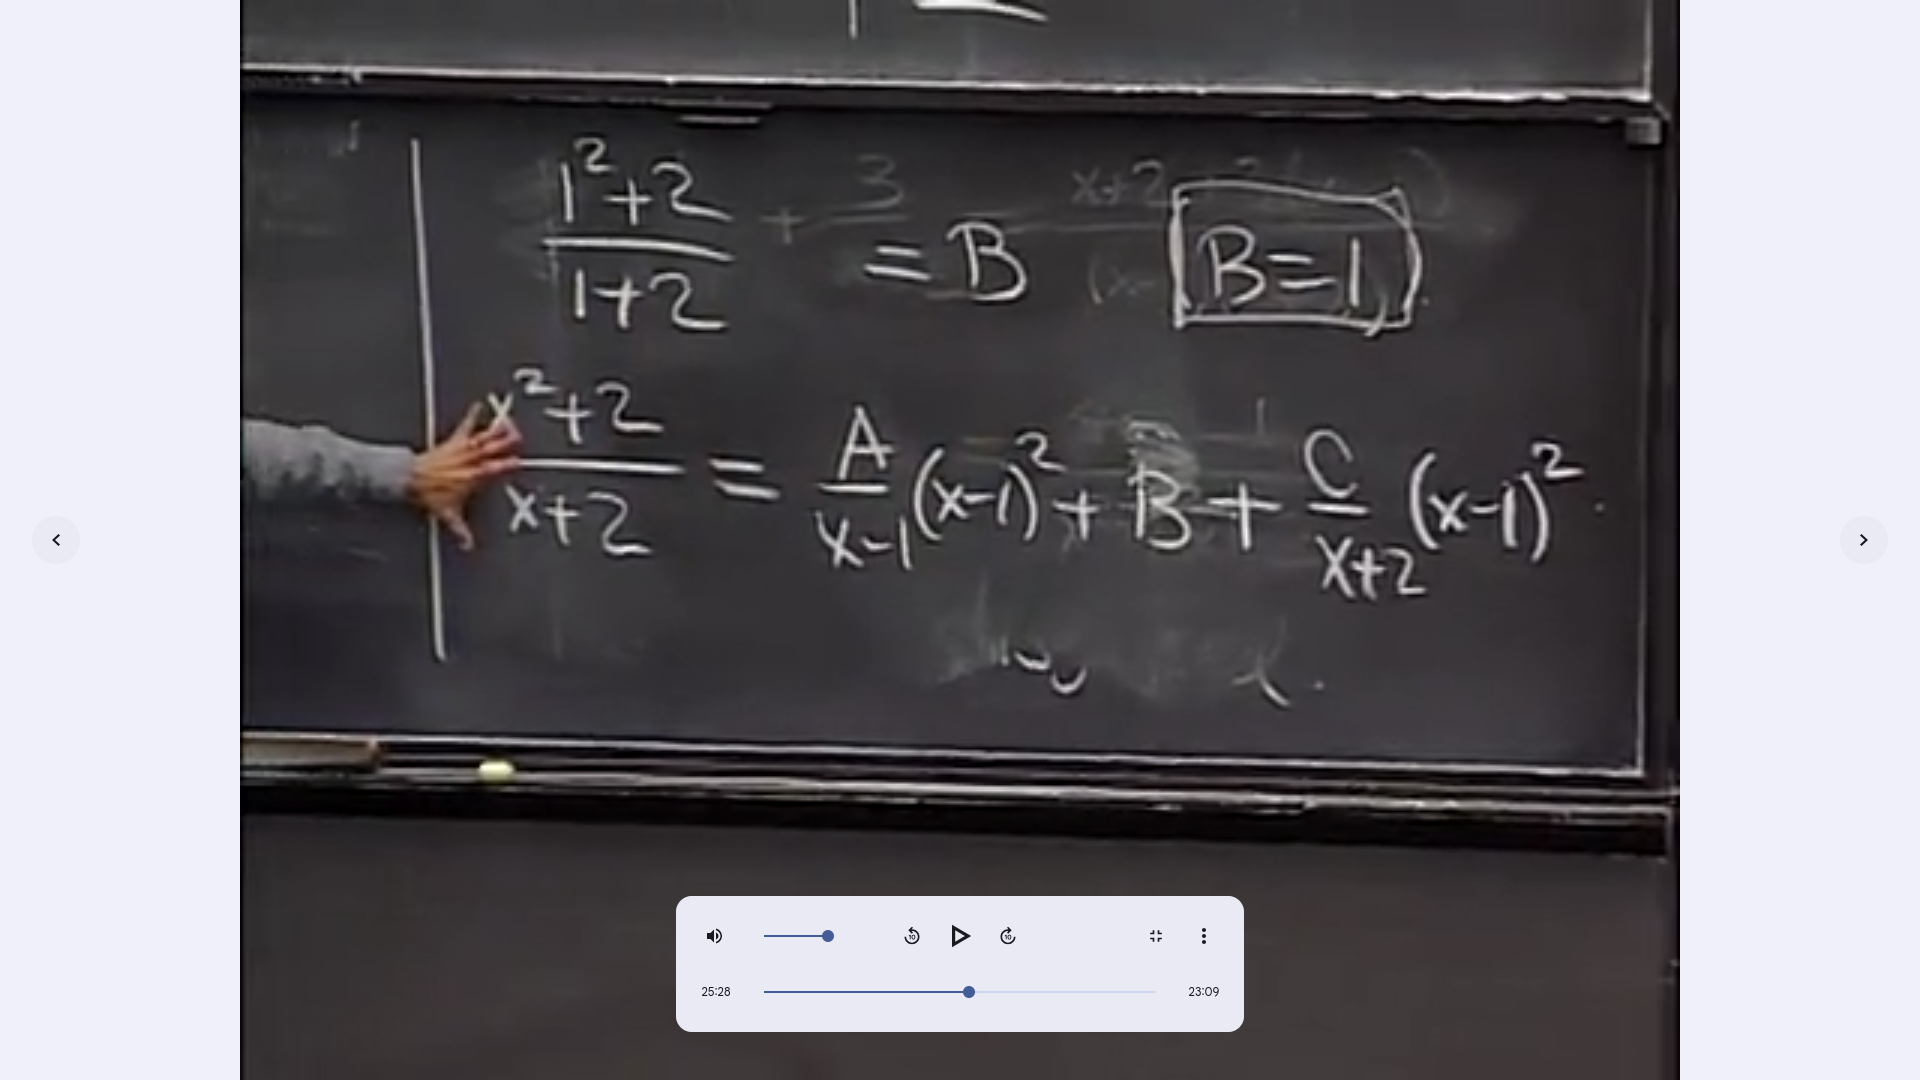 1²+2 / 1+2 = B   B=1
x²+2 / x+2 = A/x-1 (x-1)² + B + C/x+2 (x-1)²
10 10
25:28 23:09